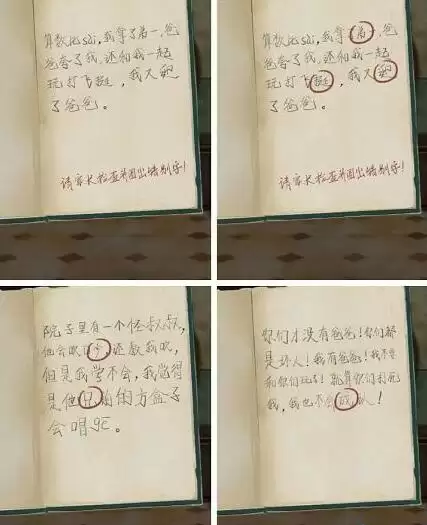 算数比sài,我拿了弟一,爸
爸夸了我,还和我一起
玩打飞挺,我大
了爸爸。
请家长检查并圈出错别字!
算数比sài,我拿了弟一,爸
爸夸了我,还和我一起
玩打飞挺,我大
了爸爸。
请家长检查并圈出错别字!
院子里有一个怪叔叔,
他会吹口,还教我吹,
但是我学不会,我觉得
是他兄前的方盒子
会唱gē。
你们才没有爸爸!你们都
是坏人!我有爸爸!我不要
和你们玩了!就算你们打死
我,我也不会成!